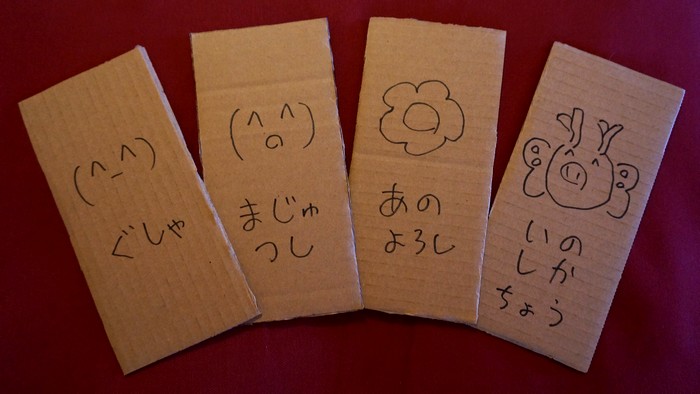 (^_^)
ぐしゃ
(^o^)
まじゅ
つし
あの
よろし
いの
しか
ちょう